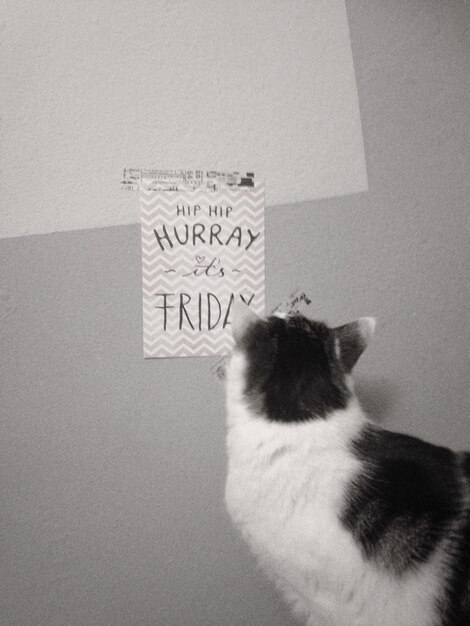 HIP HIP
HURRAY
~ it's ~
FRIDAY